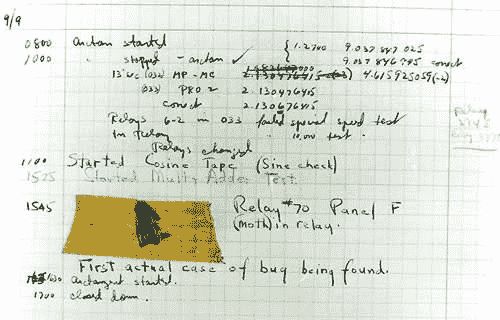 9/9
0800 arctan started { 1.2700 9.037 847 025
1000 " stopped - arctan ✓ 9.037 846 995 correct
13"uc (032) MP-MC 2.130476415 4.615925059(-2)
(033) PRO 2 2.130476415
correct 2.130676415
Relays 6-2 in 033 failed special speed test
in relay " 10,000 test .
Relays changed
1100 Started Cosine Tape (Sine check)
1525 Started Multi Adder Test.
1545 Relay #70 Panel F
(moth) in relay.
First actual case of bug being found.
1630 arctangent started.
1700 closed down.